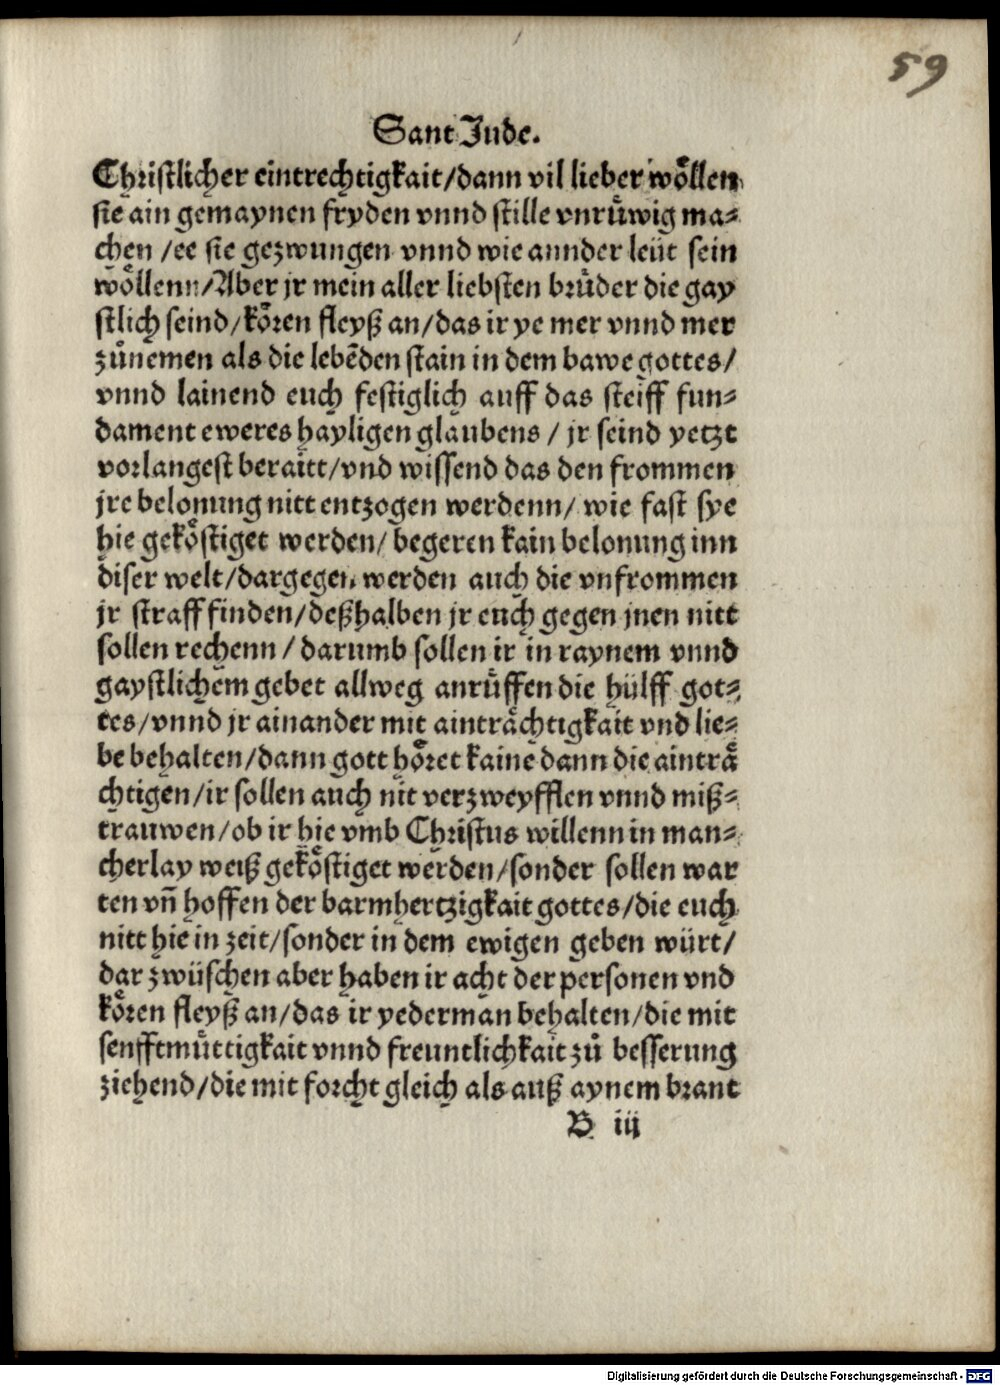 59
Sant Jude.
Christlicher eintrechtigkait/dann vil lieber woͤllen
sie ain gemaynen fryden vnnd stille vnruͤwig ma⸗
chen /ee sie gezwungen vnnd wie annder leüt sein
woͤllenn/Aber jr mein aller liebsten bruͤder die gay
stlich seind/koͤren fleyß an/das ir ye mer vnnd mer
zuͦnemen als die lebẽden stain in dem bawe gottes/
vnnd lainend euch festiglich auff das steiff fun⸗
dament eweres hayligen glaubens / jr seind yetzt
vorlangest beraitt/vnd wissend das den frommen
jre belonung nitt entzogen werdenn/ wie fast sye
hie gekoͤstiget werden/ begeren kain belonung inn
diser welt/dargegen werden auch die vnfrommen
jr straff finden/deßhalben jr euch gegen jnen nitt
sollen rechenn / darumb sollen ir in raynem vnnd
gaystlichem gebet allweg anruͤffen die hülff got⸗
tes/vnnd jr ainander mit aintraͤchtigkait vnd lie⸗
be behalten/dann gott hoͤret kaine dann die aintraͤ
chtigen/ir sollen auch nit verzweyfflen vnnd miß⸗
trauwen/ob ir hie vmb Christus willenn in man⸗
cherlay weiß gekoͤstiget werden/sonder sollen war
ten vñ hoffen der barmhertzigkait gottes/die euch
nitt hie in zeit/sonder in dem ewigen geben würt/
dar zwüschen aber haben ir acht der personen vnd
koͤren fleyß an/das ir yederman behalten/die mit
senfftmuͤttigkait vnnd freuntlichkait zuͦ besserung
ziehend/die mit forcht gleich als auß aynem brant
B iij
Digitalisierung gefördert durch die Deutsche Forschungsgemeinschaft - DFG